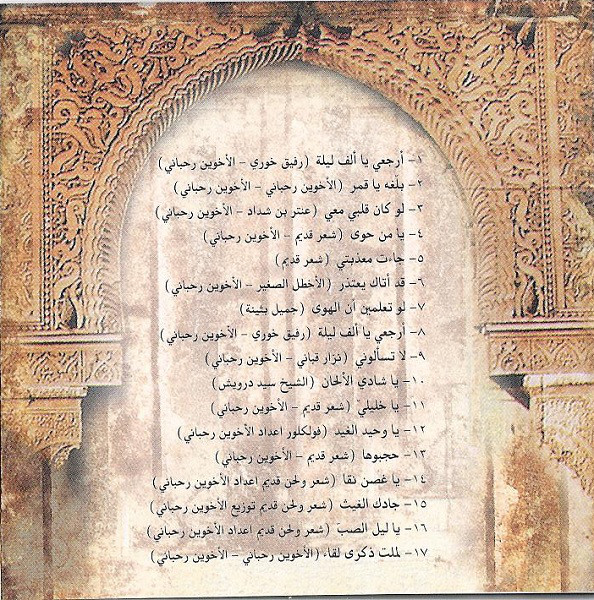 ١- أرجعي يا ألف ليلة (رفيق خوري - الأخوين رحباني)
٢- بلّغه يا قمر (الأخوين رحباني - الأخوين رحباني)
٣- لو كان قلبي معي (عنتر بن شداد - الأخوين رحباني)
٤- يا من حوى (شعر قديم - الأخوين رحباني)
٥- جاءت معذبتي (شعر قديم)
٦- قد أتاك يعتذر (الأخطل الصغير - الأخوين رحباني)
٧- لو تعلمين أن الهوى (جميل بثينة)
٨- أرجعي يا ألف ليلة (رفيق خوري - الأخوين رحباني)
٩- لا تسألوني (نزار قباني - الأخوين رحباني)
١٠- يا شادي الألحان (الشيخ سيد درويش)
١١- يا خليليّ (شعر قديم - الأخوين رحباني)
١٢- يا وحيد الغيد (فولكلور اعداد الأخوين رحباني)
١٣- حجبوها (شعر قديم - الأخوين رحباني)
١٤- يا غصن نقا (شعر ولحن قديم اعداد الأخوين رحباني)
١٥- جادك الغيث (شعر ولحن قديم توزيع الأخوين رحباني)
١٦- يا ليل الصبّ (شعر ولحن قديم اعداد الأخوين رحباني)
١٧- لملمت ذكرى لقاء (الأخوين رحباني - الأخوين رحباني)